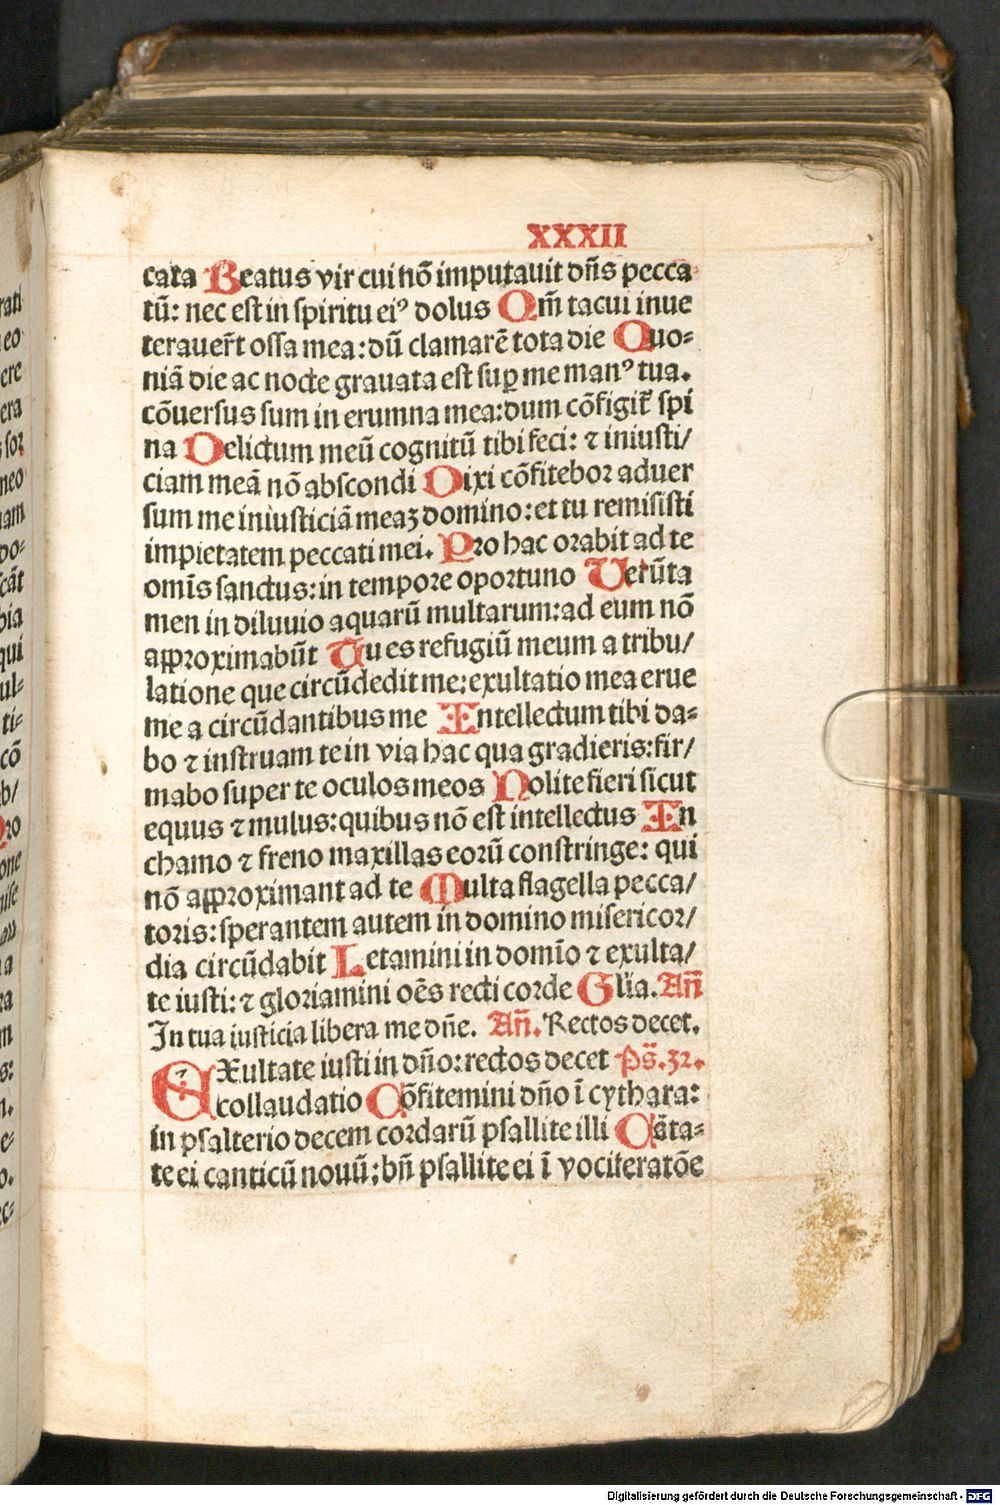 XXXII
cata Beatus vir cui nõ imputauit dñs pecca
tũ: nec est in spiritu eiꝰ dolus Qm̃ tacui inue
terauer̃t ossa mea: dũ clamarẽ tota die Quo⸗
niã die ac nocte grauata est suꝑ me manꝰ tua.
cõuersus sum in erumna mea: dum cõfigit̃ spi
na Delictum meũ cognitũ tibi feci: ⁊ iniusti/
ciam meã nõ abscondi Dixi cõfitebor aduer
sum me iniusticiã meaꝫ domino: et tu remisisti
impietatem peccati mei. Pro hac orabit ad te
omĩs sanctus: in tempore oportuno Verũta
men in diluuio aquarũ multarum: ad eum nõ
approximabũt Tu es refugiũ meum a tribu/
latione que circũdedit me: exultatio mea erue
me a circũdantibus me Intellectum tibi da⸗
bo ⁊ instruam te in via hac qua gradieris: fir/
mabo super te oculos meos Nolite fieri sicut
equus ⁊ mulus: quibus nõ est intellectus In
chamo ⁊ freno maxillas eorũ constringe: qui
nõ approximant ad te Multa flagella pecca/
toris: sperantem autem in domino misericor/
dia circũdabit Letamini in domĩo ⁊ exulta/
te iusti: ⁊ gloriamini oẽs recti corde Glĩa. Añ
In tua iusticia libera me dñe. Añ. Rectos decet.
EXultate iusti in dño: rectos decet Ps̃. 32.
collaudatio Cõfitemini dño ĩ cythara:
in psalterio decem cordarũ psallite illi Cãta⸗
te ei canticũ nouũ: bñ psallite ei ĩ vociferatõe
rati
eo
ere
era
sor
neo
uam
po⸗
cãt
bia
qui
ul⸗
ti⸗
cõ
b/
ro
one
a
ra
m
s:
e⸗
o.
ec⸗
Digitalisierung gefördert durch die Deutsche Forschungsgemeinschaft - DFG